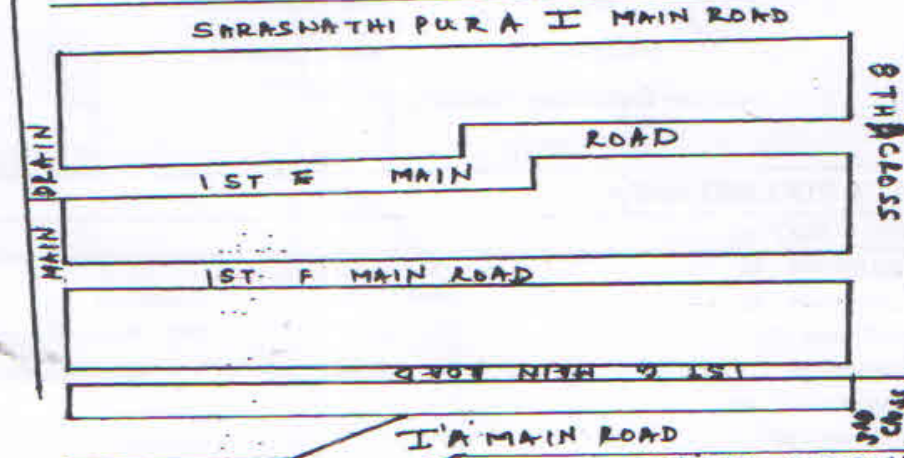 SARASWATHI PURA I MAIN ROAD
8TH A CROSS
ROAD
MAIN DRAIN
1ST E MAIN
1ST F MAIN ROAD
1ST G MAIN ROAD
I'A' MAIN ROAD
CROSS